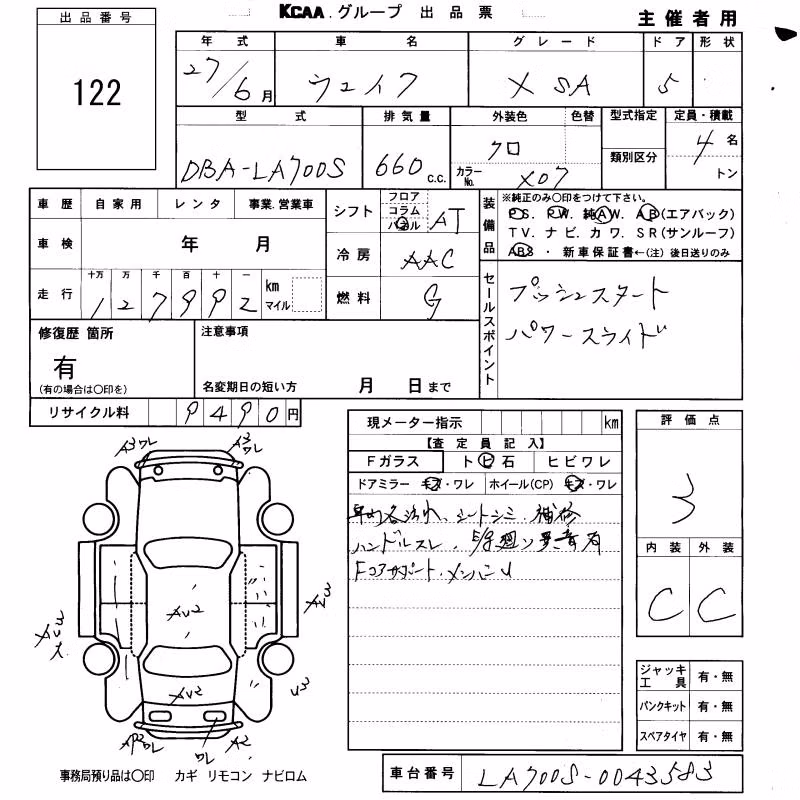 KCAA.グループ 出品票
主催者用
出品番号
122
年式 車名 グレード ドア 形状
27/6月 ウェイク X SA 5
型式 排気量 外装色 色替 型式指定 定員・積載
DBA-LA700S 660c.c. クロ 類別区分 4名
カラーNo. X07 トン
車歴 自家用 レンタ 事業.営業車
シフト フロア コラム パネル AT
装備品
※純正のみ〇印をつけて下さい。
PS. PW. 純AW. AB(エアバック)
TV. ナビ. カワ. SR(サンルーフ)
ABS ・ 新車保証書←(注) 後日送りのみ
車検 年 月
冷房 AAC
走行 十万 万 千 百 十 一 km マイル
127992
燃料 G
セールスポイント
プッシュスタート
パワースライド
修復歴 箇所
有
(有の場合は〇印を)
注意事項
名変期日の短い方 月 日まで
リサイクル料 9490円
現メーター指示 km
【査定員記入】
Fガラス トビ石 ヒビワレ
ドアミラー キズ・ワレ ホイール(CP) キズ・ワレ
車内各汚れ、シートシミ 補修
ハンドルスレ、
Fコアサポート・メンバー
評価点
3
内装 外装
C C
A3ワレ
A3ワレ
AU2
AU3
AU3
AU2
U3
ワレ
A2
ワレ
ジャッキ工具 有・無
パンクキット 有・無
スペアタイヤ 有・無
事務局預り品は〇印 カギ リモコン ナビロム
車台番号 LA700S-0043583